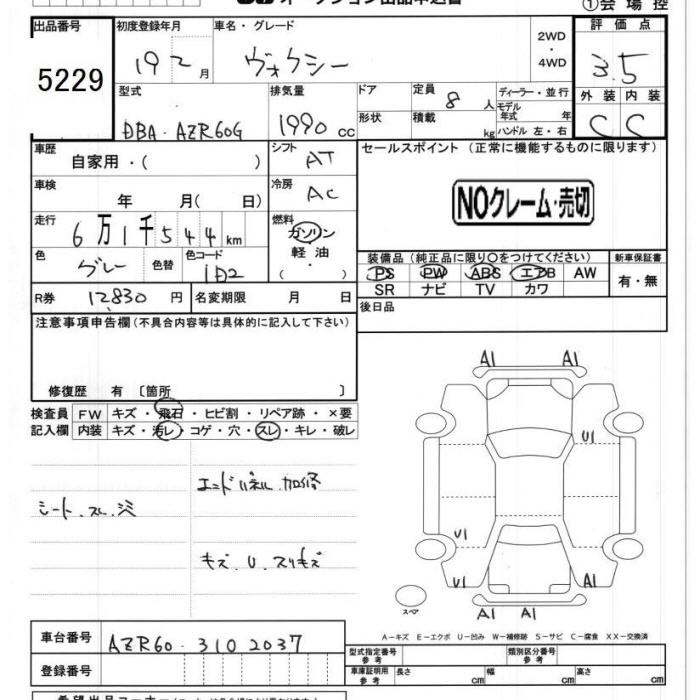 ①会場控
出品番号 初度登録年月 車名・グレード 2WD ・ 4WD 評価点
5229 19 2月 ヴォクシー 3.5
型式 排気量 ドア 定員 8人 ディーラー・並行 外装 内装
DBA・AZR60G 1990cc 形状 積載 kg モデル年式 年 ハンドル 左・右 C C
車歴 自家用・( ) シフト AT セールスポイント (正常に機能するものに限ります)
車検 年 月( 日) 冷房 AC NOクレーム・売切
走行 6万1千544km 燃料 ガソリン 軽油 ( ・ )
色 グレー 色替 色コード 1D2 装備品 (純正品に限り○をつけてください) 新車保証書
PS PW ABS エアB AW 有・無
SR ナビ TV カワ
R券 12830円 名変期限 月 日 後日品
注意事項申告欄 (不具合内容等は具体的に記入して下さい)
修復歴 有 [箇所 ]
検査員 FW キズ・飛石・ヒビ割・リペア跡・×要
記入欄 内装 キズ・汚レ・コゲ・穴・スレ・キレ・破レ
シート スレ
エンドパネル 加修
キズ.U.スリキズ
A1 A1
U1
U1
U1 A1
A1 A1
スペア
A-キズ E-エクボ U-凹み W-補修跡 S-サビ C-腐食 XX-交換済
車台番号 AZR60-3102037
型式指定番号 参考 類別区分番号 参考
登録番号 車庫証明用 参考 長さ cm 幅 cm 高さ cm